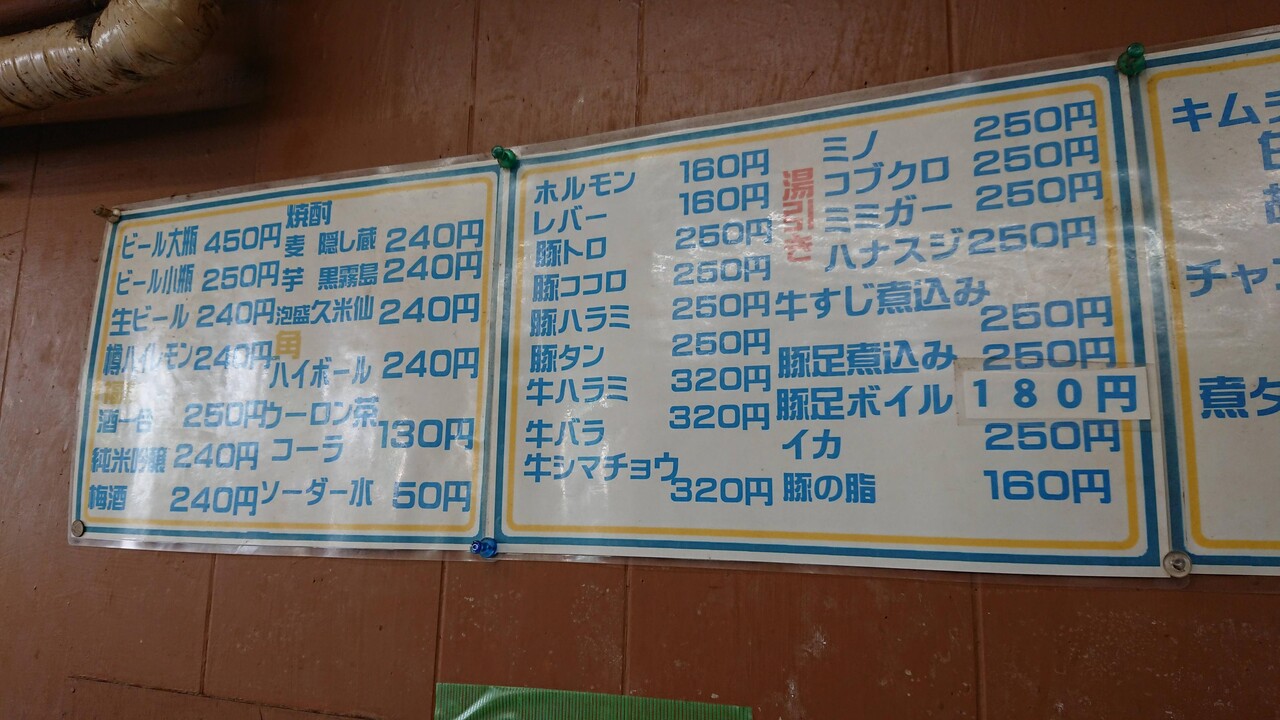 ビール大瓶 450円
ビール小瓶 250円
生ビール 240円
樽ハイレモン 240円
酒一合 250円
純米吟醸 240円
梅酒 240円
焼酎
麦 隠し蔵 240円
芋 黒霧島 240円
泡盛久米仙 240円
角
ハイボール 240円
ウーロン茶
コーラ 130円
ソーダー水 50円
ホルモン 160円
レバー 160円
豚トロ 250円
豚ココロ 250円
豚ハラミ 250円
豚タン 250円
牛ハラミ 320円
牛バラ 320円
牛シマチョウ 320円
湯引き
ミノ 250円
コブクロ 250円
ミミガー 250円
ハナスジ 250円
牛すじ煮込み 250円
豚足煮込み 250円
豚足ボイル 180円
イカ 250円
豚の脂 160円
キム
チャ
煮